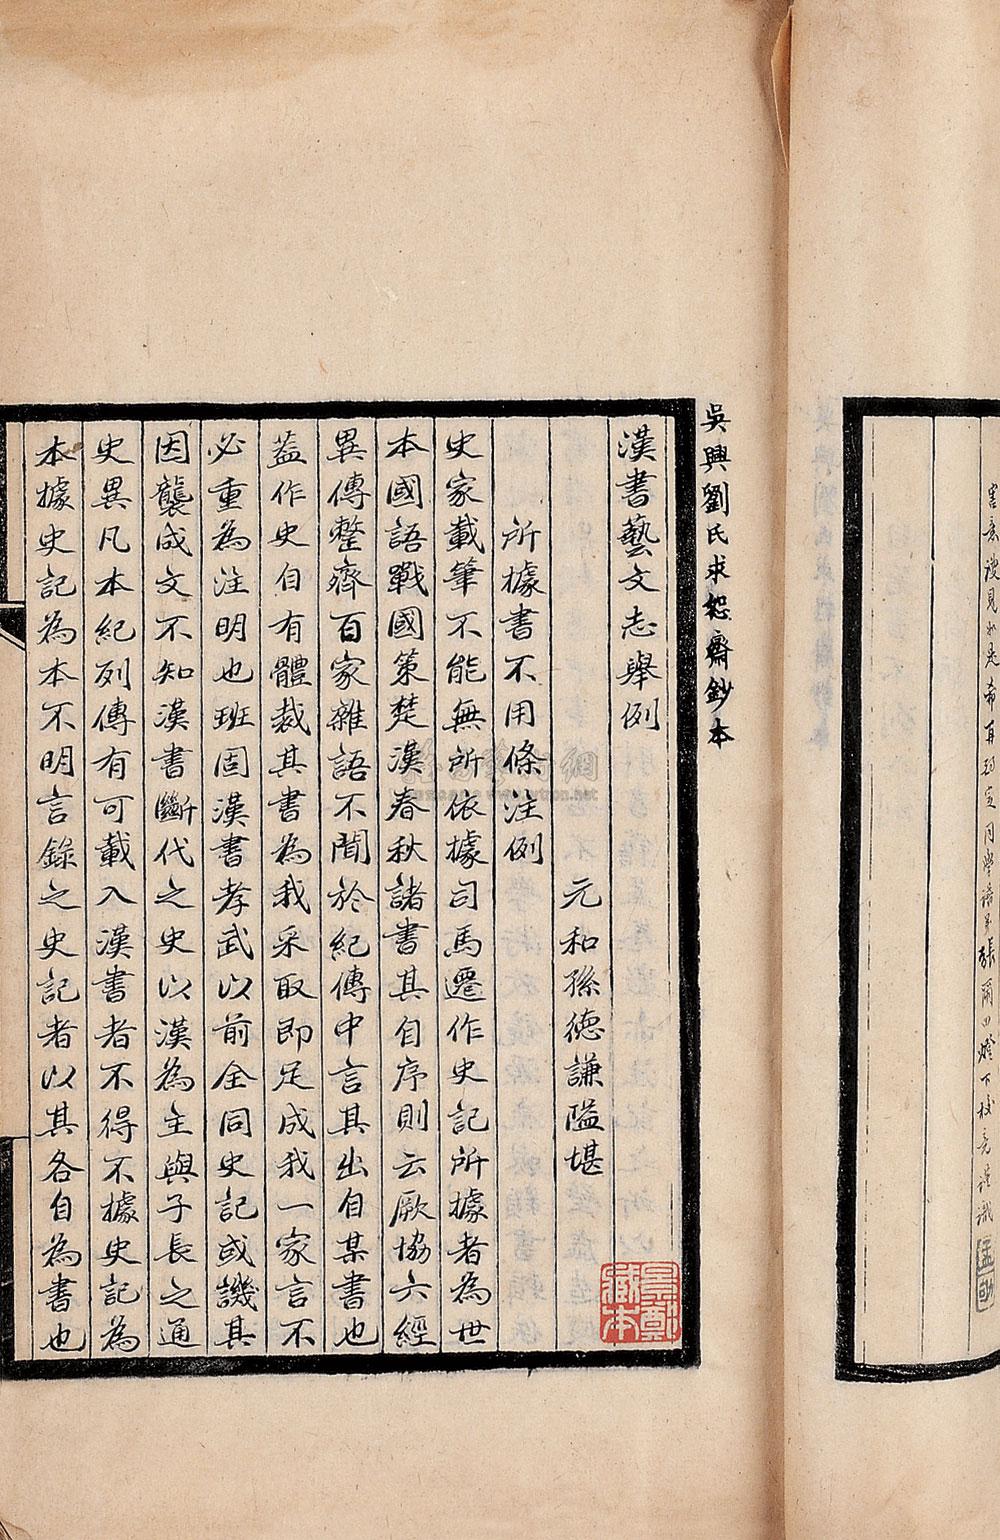 害意謏見如是
張爾田燈下校竟謹識
吳興劉氏求恕齋鈔本
漢書藝文志舉例
元和孫德謙隘堪
所據書不用條注例
史家載筆不能無所依據司馬遷作史記所據者為世
本國語戰國策楚漢春秋諸書其自序則云厥協六經
異傳整齊百家雜語不聞於紀傳中言其出自某書也
蓋作史自有體裁其書為我采取即足成我一家言不
必重為注明也班固漢書孝武以前全同史記或譏其
因襲成文不知漢書斷代之史以漢為主與子長之通
史異凡本紀列傳有可載入漢書者不得不據史記為
本據史記為本不明言錄之史記者以其各自為書也
景鄭藏本